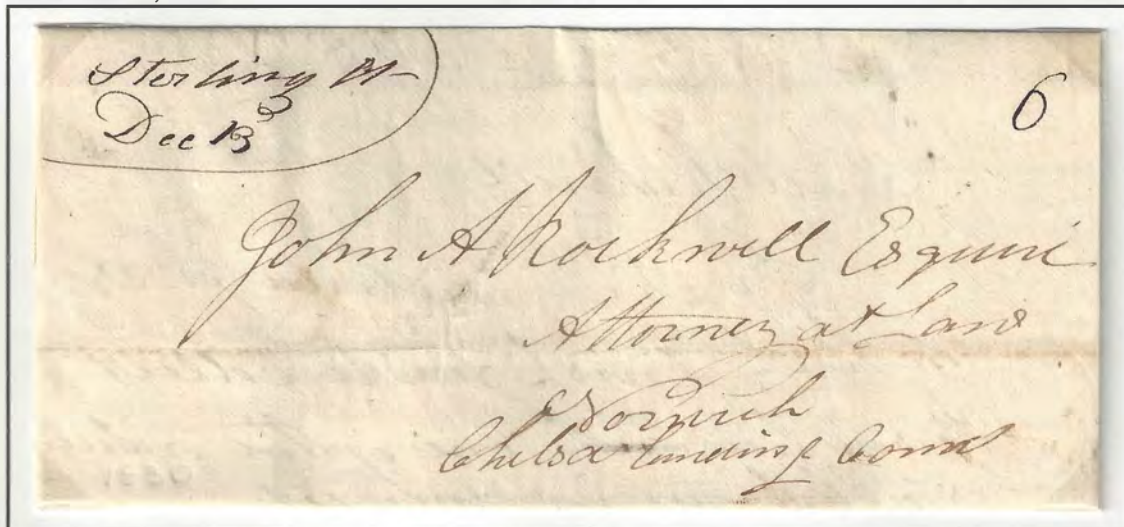 Sterling Ct
Dec 13
6
John A Rockwell Esquire
Attorney at Law
Norwich
Chelsa Landing Conn